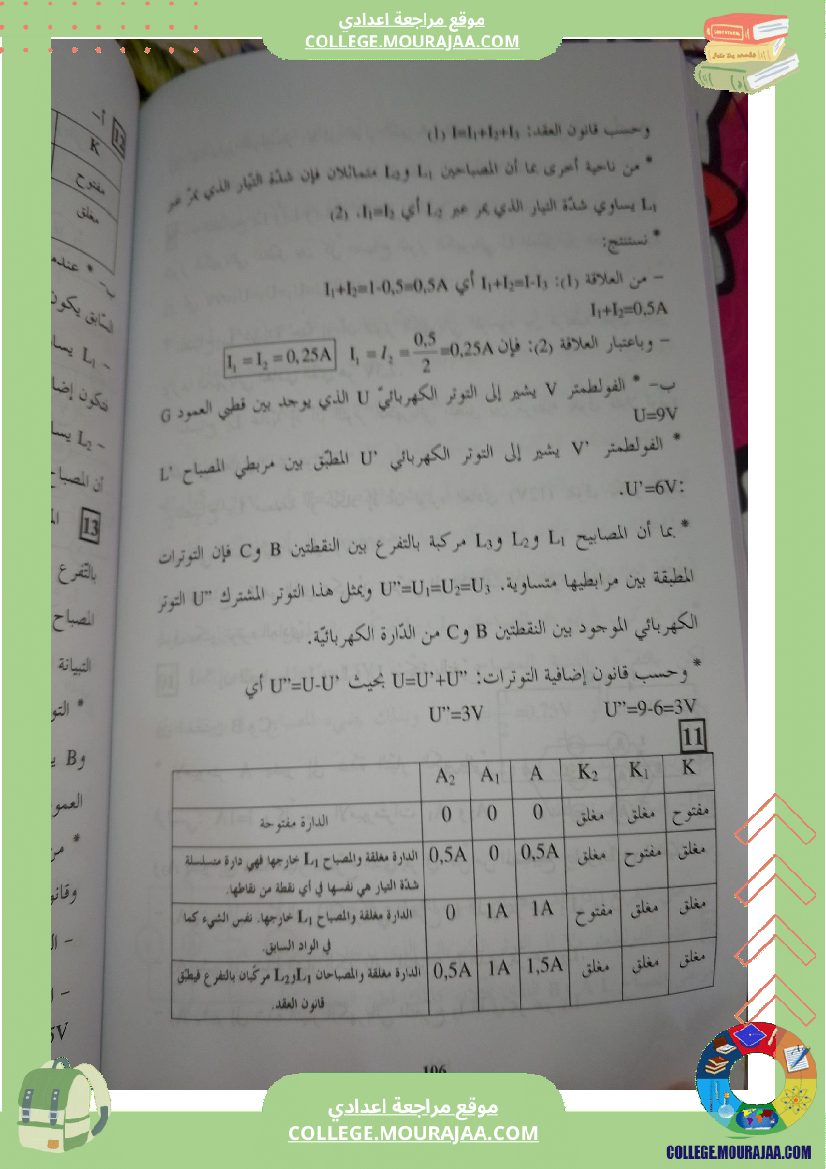 موقع مراجعة اعدادي
COLLEGE.MOURAJAA.COM
وحسب قانون العقد: I=I₁+I₂+I₃ (1)
* من ناحية أخرى بما أن المصباحين L₁ وL₂ متماثلان فإن شدّة التيار الذي يمرّ عبر
L₁ يساوي شدّة التيار الذي يمر عبر L₂ أي I₁=I₂. (2)
* نستنتج:
– من العلاقة (1): I₁+I₂=I-I₃ أي I₁+I₂=1-0,5=0,5A
I₁+I₂=0,5A
– وباعتبار العلاقة (2): فإن I₁ = I₂ = 0,5/2 =0,25A I₁ = I₂ = 0,25A
ب– * الفولطمتر V يشير إلى التوتر الكهربائيّ U الذي يوجد بين قطبي العمود G
U=9V
* الفولطمتر V’ يشير إلى التوتر الكهربائي U’ المطبّق بين مربطي المصباح L’
:U’=6V.
* بما أن المصابيح L₁ وL₂ وL₃ مركبة بالتفرع بين النقطتين B وC فإن التوترات
المطبقة بين مرابطيها متساوية. U”=U₁=U₂=U₃ ويمثل هذا التوتر المشترك U” التوتر
الكهربائي الموجود بين النقطتين B وC من الدّارة الكهربائيّة.
* وحسب قانون إضافية التوترات: U=U’+U” بحيث U”=U-U’ أي
U”=9-6=3V U”=3V
11
K K₁ K₂ A A₁ A₂
مفتوح مغلق مغلق 0 0 0 الدارة مفتوحة
مغلق مفتوح مغلق 0,5A 0 0,5A الدارة مغلقة والمصباح L₁ خارجها فهي دارة متسلسلة
شدّة التيار هي نفسها في أي نقطة من نقاطها.
مغلق مغلق مفتوح 1A 1A 0 الدارة مغلقة والمصباح L₁ خارجها. نفس الشيء كما
في الواد السابق.
مغلق مغلق مغلق 1,5A 1A 0,5A الدارة مغلقة والمصباحان L₁ وL₂ مركّبان بالتفرع فيطبّق
قانون العقد.
106
12
أ–
K
مفتوح
مغلق
ب– * عندم
السّابق يكون
– L₁ يسا
فتكون إضا
– L₂ يس
أن المصبا
13
بالتّفرع
المصباح
التبيانة
* التو
وB
العمو
* مر
وقانو
5V
موقع مراجعة اعدادي
COLLEGE.MOURAJAA.COM
COLLEGE.MOURAJAA.COM